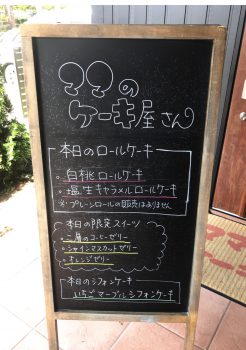 ママの
ケーキ屋さん
本日のロールケーキ
・白桃ロールケーキ
・塩生キャラメルロールケーキ
※プレーンロールの販売はありません
本日の限定スイーツ
・二層のコーヒーゼリー
・シャインマスカットゼリー
・オレンジゼリー
本日のシフォンケーキ
いちごマーブルシフォンケーキ